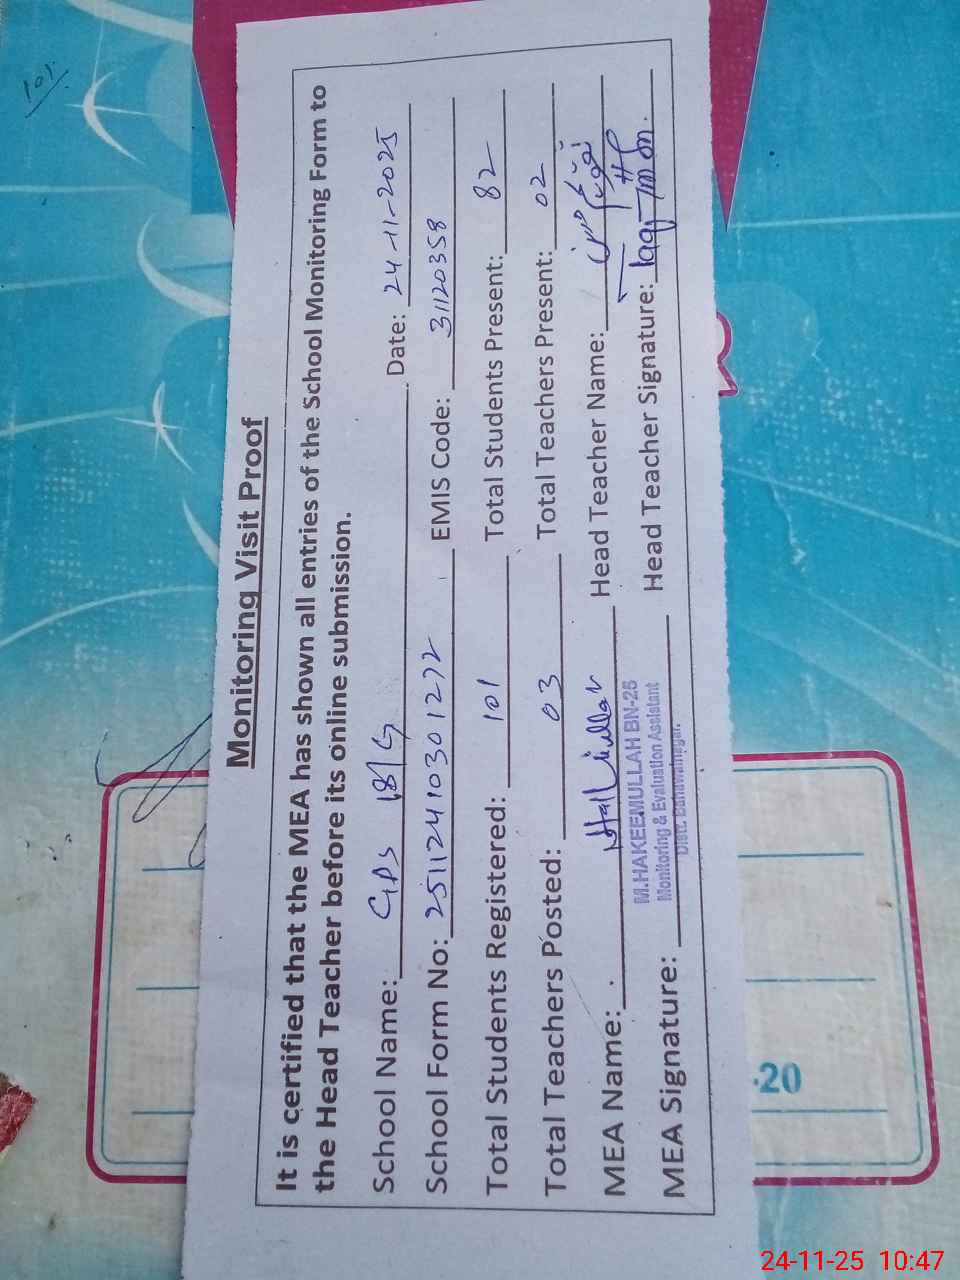 Monitoring Visit Proof
It is certified that the MEA has shown all entries of the School Monitoring Form to
the Head Teacher before its online submission.
School Name: GPS 18/G Date: 24-11-2025
School Form No: 25112410301272 EMIS Code: 31120358
Total Students Registered: 101 Total Students Present: 82
Total Teachers Posted: 03 Total Teachers Present: 02
MEA Name: Head Teacher Name:
M.HAKEEMULLAH BN-25
Monitoring & Evaluation Assistant
Distt. Bahawalnagar.
MEA Signature: Head Teacher Signature:
101
20
24-11-25 10:47